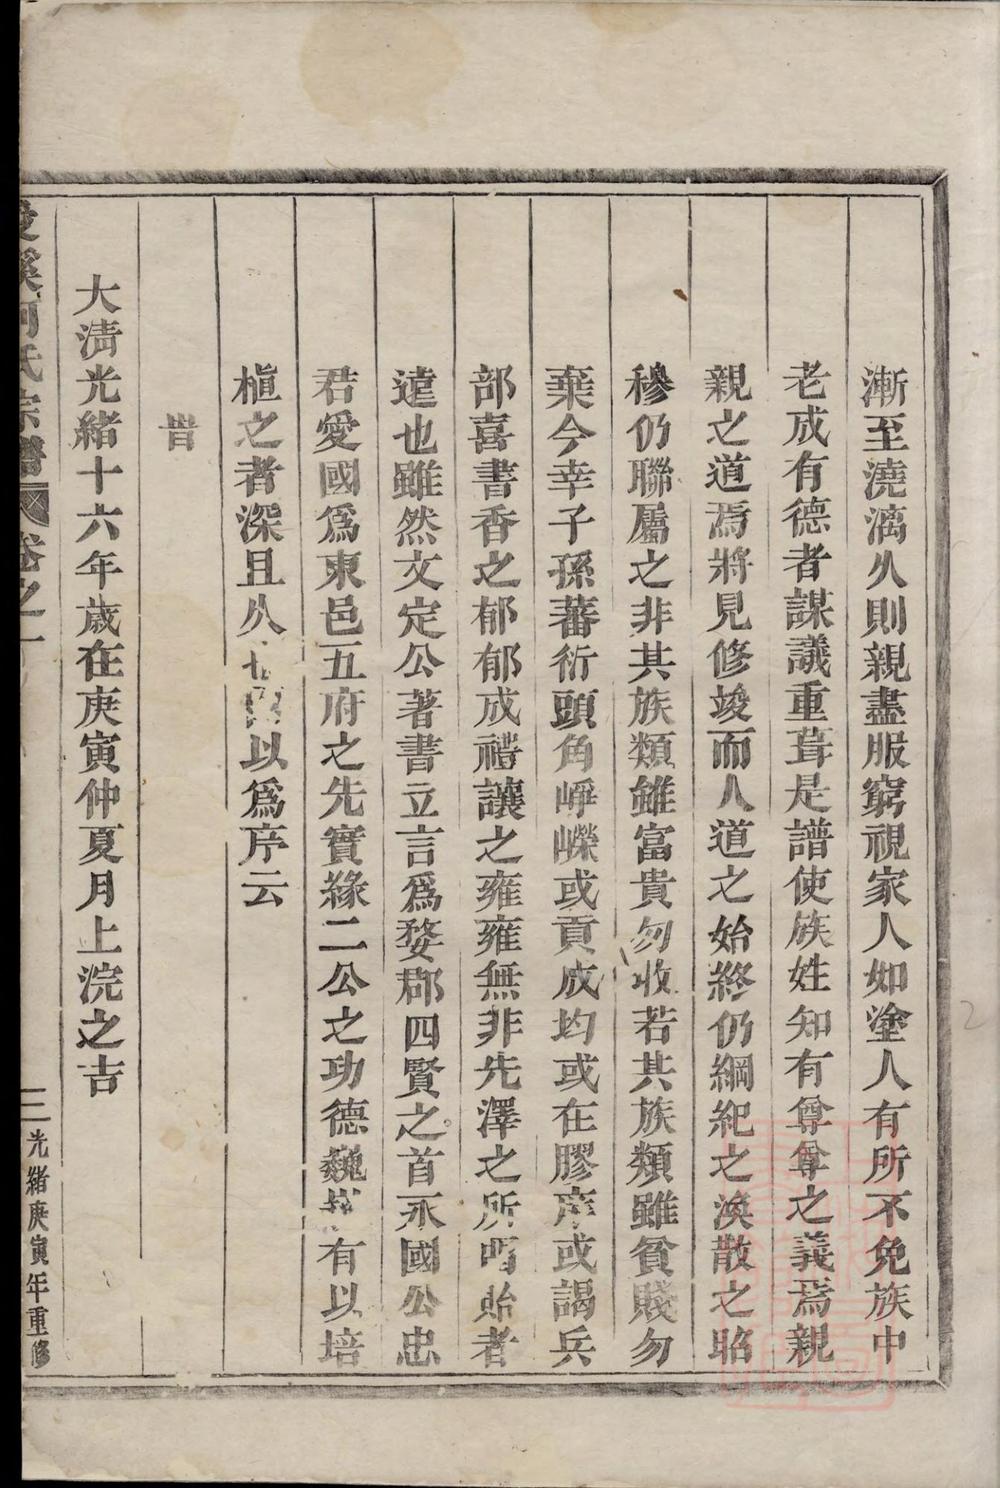 漸至澆漓久則親盡服窮視家人如塗人有所不免族中
老成有德者謀議重葺是譜使族姓知有尊尊之義焉親
親之道焉將見修竣而人道之始終仍綱紀之渙散之昭
穆仍聯屬之非其族類雖富貴勿收若其族類雖貧賤勿
棄今幸子孫蕃衍頭角崢嶸或貢成均或在膠庠或謁兵
部喜書香之郁郁成禮讓之雍雍無非先澤之所貽者
遠也雖然文定公著書立言爲婺郡四賢之首永國公忠
君愛國爲東邑五府之先實緣二公之功德巍有以培
植之者深且久以爲序云
旹
大淸光緒十六年歲在庚寅仲夏月上浣之吉
溪何氏宗譜 卷之一 三 光緒庚寅年重修